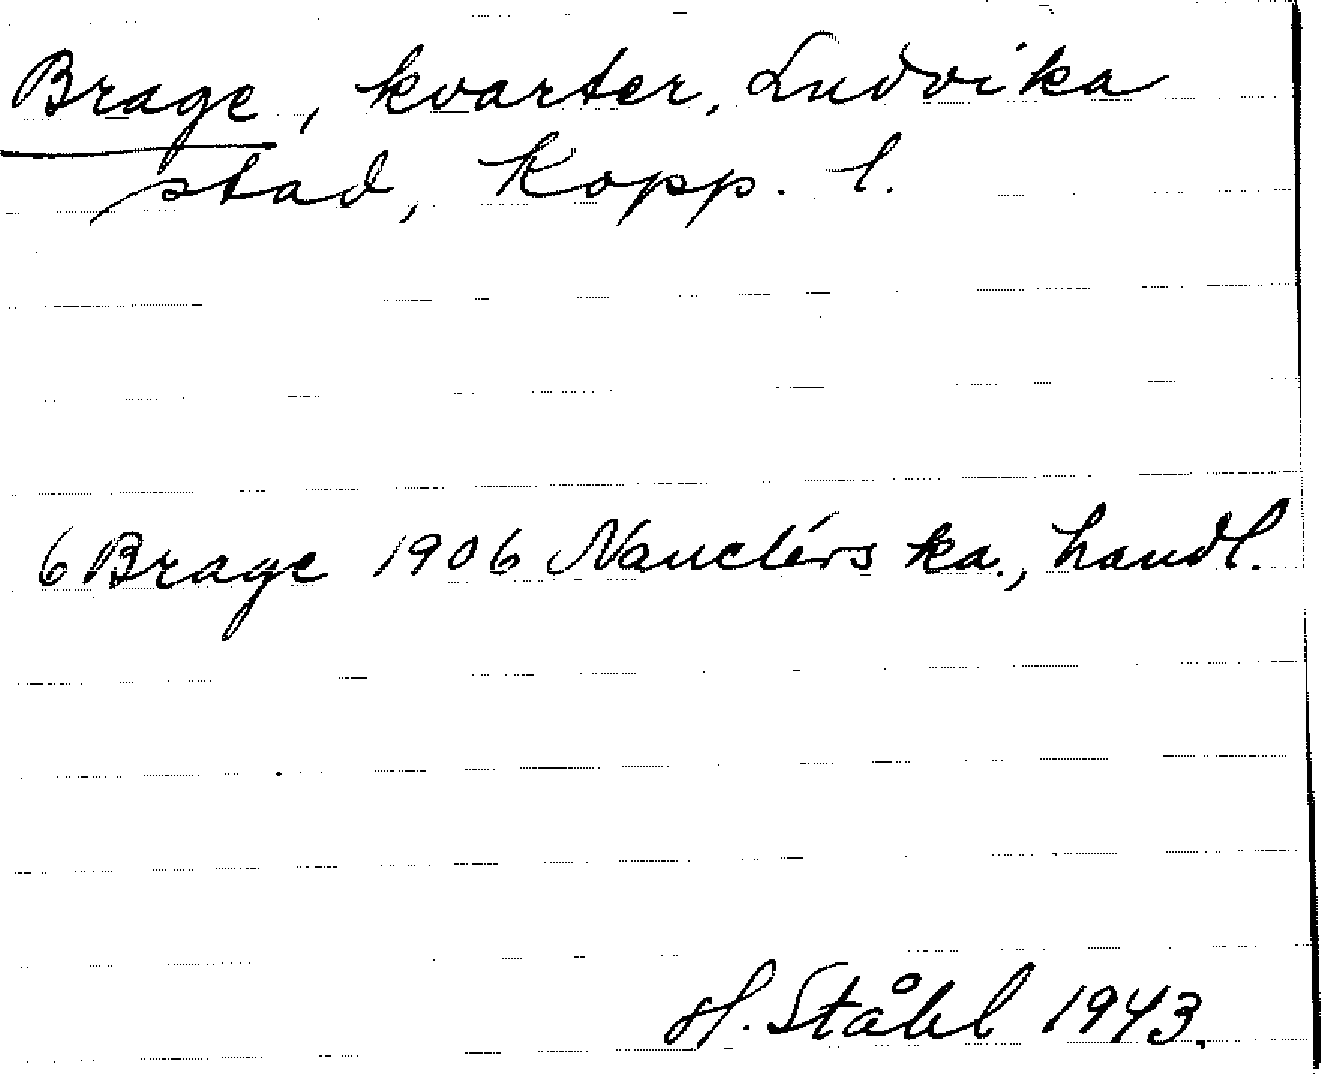 Brage, kvarter, Ludvika
stad, Kopp. l.
6 Brage 1906 Nauclérs ka., handl.
H. Ståhl 1943.